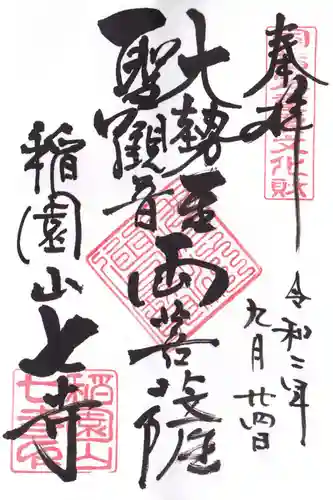 奉拝
文化財
令和二年
九月廿四日
大勢至
聖観音
両菩薩
稲園山七寺
稲園山